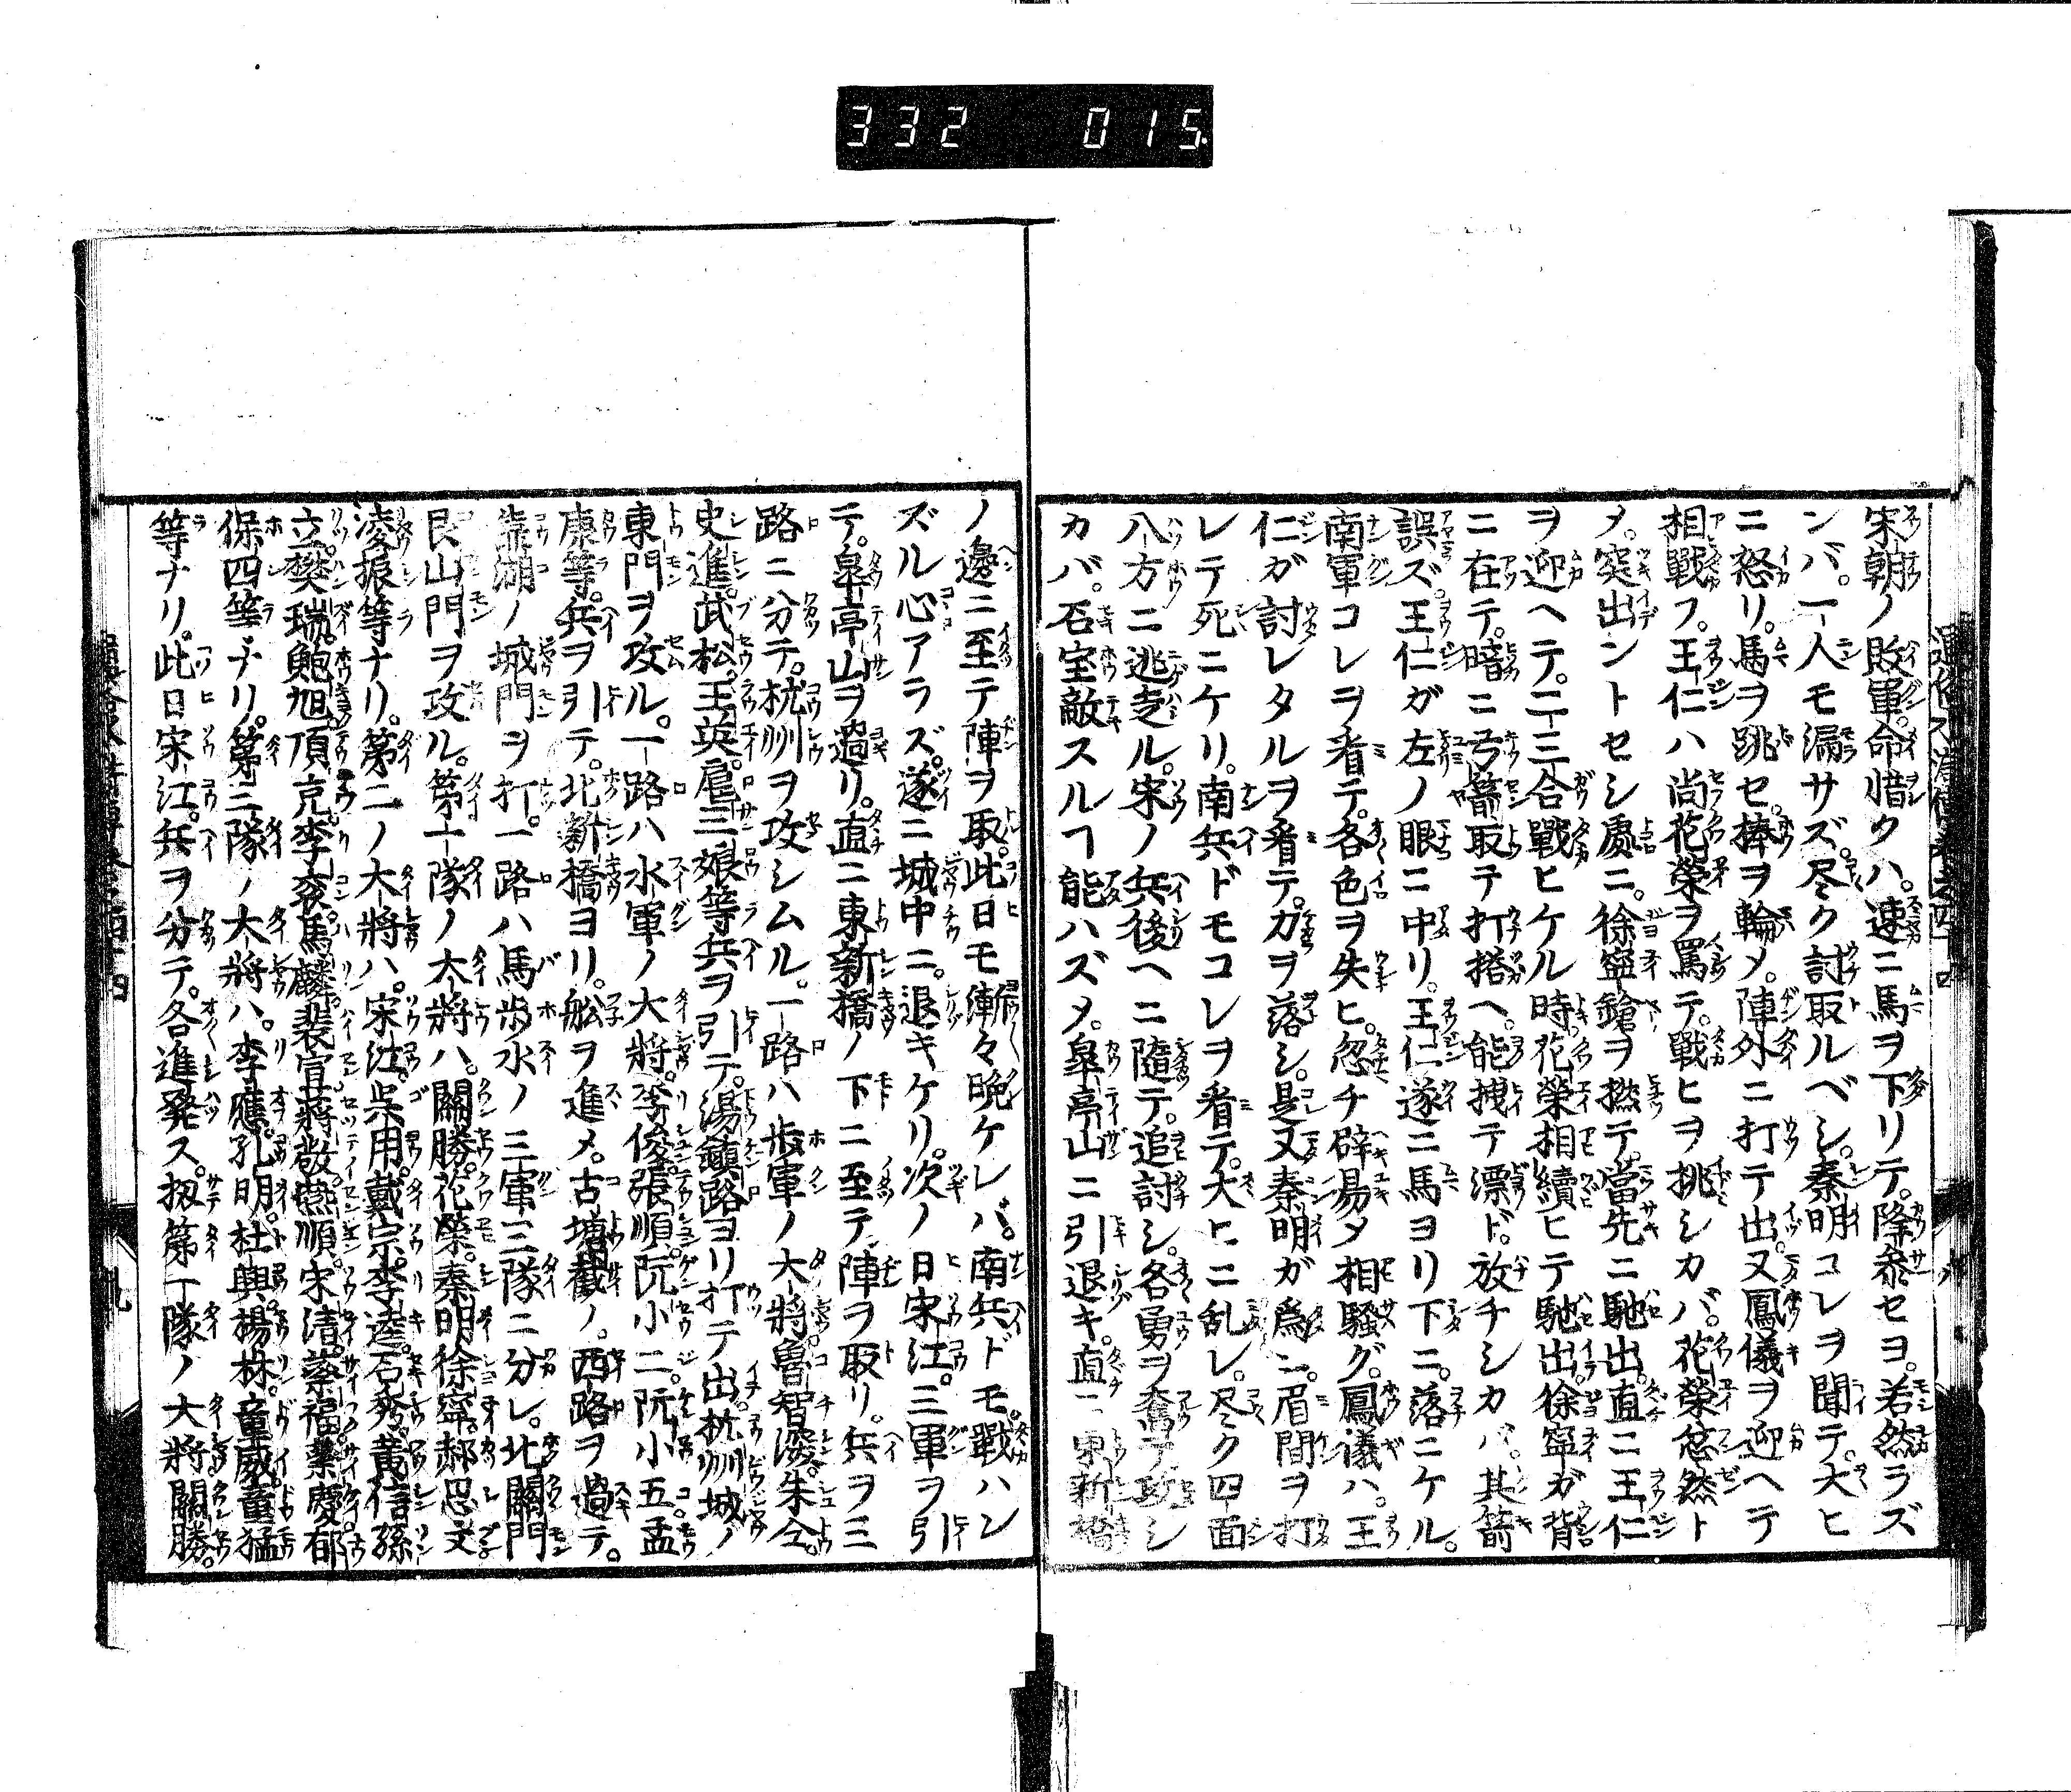 332 015
宋朝ノ敗軍。命惜クハ。速ニ馬ヲ下リテ。降参セヨ。若然ラズ
ンバ。一人モ漏サズ。尽ク討取ルベシ。秦明コレヲ聞テ。大ヒ
ニ怒リ。馬ヲ跳セ。棒ヲ輪メ。陣外ニ打テ出。又鳳儀ヲ迎ヘテ
相戰フ。王仁ハ尚花榮ヲ罵テ。戰ヒヲ挑シカバ。花榮忿然ト
メ。突出ントセシ處ニ。徐寧鎗ヲ撚テ。當先ニ馳出。直ニ王仁
ヲ迎ヘテ。二三合戰ヒケル時。花榮相續ヒテ馳出。徐寧ガ背
ニ在テ。暗ニ弓箭取テ打搭ヘ。能拽テ漂ド。放チシカバ。其箭
誤ズ。王仁ガ左ノ眼ニ中リ。王仁遂ニ馬ヨリ下ニ。落ニケル。
南軍コレヲ看テ。各色ヲ失ヒ。忽チ辟易タ相騷グ。鳳儀ハ。王
仁ガ討レタルヲ看テ。力ヲ落シ。是又秦明ガ爲ニ。眉間ヲ打
レテ死ニケリ。南兵ドモコレヲ看テ。大ヒニ乱レ。尽ク四面
八方ニ逃走ル。宋ノ兵後ヘニ隨テ。追討シ。各勇ヲ奮テ攻シ
カバ。石宝敵スルヿ能ハズメ。皐亭山ニ引退キ。直ニ東新橋
ノ邊ニ至テ陣ヲ取。此日モ漸々晩ケレバ。南兵ドモ。戰ハン
ズル心アラズ。遂ニ城中ニ。退キケリ。次ノ日宋江。三軍ヲ引
テ。皐亭山ヲ過リ。直ニ東新橋ノ下ニ至テ陣ヲ取リ。兵ヲ三
路ニ分テ。杭州ヲ攻シムル。一路ハ歩軍ノ大將。魯智深。朱仝。
史進。武松。王英。扈三娘等兵ヲ引テ。湯鎮路ヨリ打テ出。杭州城ノ
東門ヲ攻ル。一路ハ水軍ノ大將。李俊。張順。阮小二。阮小五。孟
康等。兵ヲ引テ。北新橋ヨリ。舩ヲ進メ。古塘截ノ。西路ヲ過テ。
靠湖ノ城門ヲ打。一路ハ馬歩水ノ三軍三隊ニ分レ。北關門
艮山門ヲ攻ル。第一隊ノ大將ハ。關勝。花榮。秦明。徐寧。郝思文
凌振等ナリ。第二ノ大將ハ。宋江。呉用。戴宗。李逵。石秀。黄信。孫
立。樊瑞。鮑旭。項充。李袞。馬麟。裴宣。蒋敬。燕順。宋清。蔡福。蔡慶。郁
保四等ナリ。第三隊ノ大將ハ。李應。孔明。杜興。楊林。童威。童猛
等ナリ。此日宋江。兵ヲ分テ。各進発ス。扨第一隊ノ大將關勝。